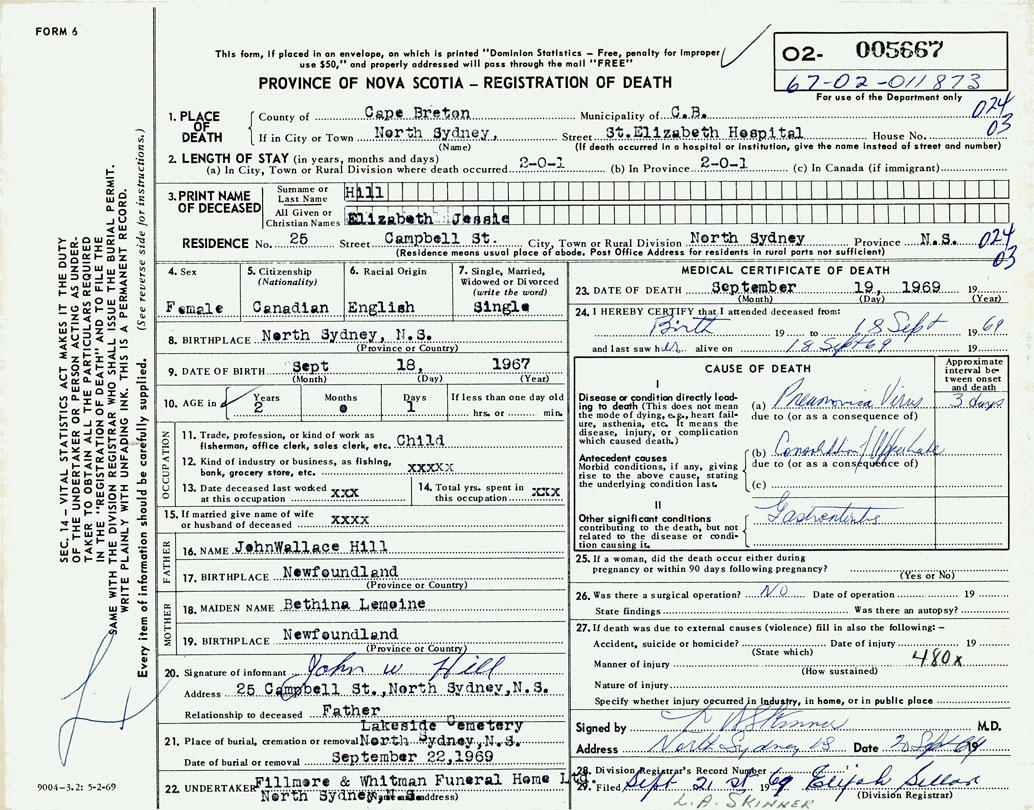 FORM 6
This form, if placed in an envelope, on which is printed "Dominion Statistics – Free, penalty for Improper
use $50," and properly addressed will pass through the mail "FREE"
PROVINCE OF NOVA SCOTIA – REGISTRATION OF DEATH
02- 005667
67-02-011873
For use of the Department only
024
03
1. PLACE OF DEATH
County of Cape Breton Municipality of C.B.
If in City or Town North Sydney, Street St.Elizabeth Hospital House No.
(Name) (If death occurred in a hospital or institution, give the name instead of street and number)
2. LENGTH OF STAY (in years, months and days)
(a) In City, Town or Rural Division where death occurred 2-0-1 (b) In Province 2-0-1 (c) In Canada (if immigrant)
3. PRINT NAME OF DECEASED
Surname or Last Name Hill
All Given or Christian Names Elizabeth Jessie
RESIDENCE No. 25 Street Campbell St. City, Town or Rural Division North Sydney Province N.S. 024
03
(Residence means usual place of abode. Post Office Address for residents in rural parts not sufficient)
4. Sex
Female
5. Citizenship (Nationality)
Canadian
6. Racial Origin
English
7. Single, Married, Widowed or Divorced (write the word)
Single
8. BIRTHPLACE North Sydney, N.S.
(Province or Country)
9. DATE OF BIRTH Sept 18, 1967
(Month) (Day) (Year)
10. AGE in Years Months Days If less than one day old
2 0 1 hrs. or min.
OCCUPATION
11. Trade, profession, or kind of work as fisherman, office clerk, sales clerk, etc. Child
12. Kind of industry or business, as fishing, bank, grocery store, etc. xxxxx
13. Date deceased last worked at this occupation xxx
14. Total yrs. spent in this occupation xxx
15. If married give name of wife or husband of deceased xxxx
FATHER
16. NAME JohnWallace Hill
17. BIRTHPLACE Newfoundland
(Province or Country)
MOTHER
18. MAIDEN NAME Bethina Lemoine
19. BIRTHPLACE Newfoundland
(Province or Country)
20. Signature of informant John W Hill
Address 25 Campbell St.,North Sydney,N.S.
Relationship to deceased Father
Lakeside Cemetery
21. Place of burial, cremation or removal North Sydney,N.S.
Date of burial or removal September 22,1969
22. UNDERTAKER Fillmore & Whitman Funeral Home Ltd
North Sydney N.S.
(Name and address)
MEDICAL CERTIFICATE OF DEATH
23. DATE OF DEATH September 19, 1969 19
(Month) (Day) (Year)
24. I HEREBY CERTIFY that I attended deceased from:
Birth 19 to 18 Sept 1969
and last saw her alive on 18 Sept 69 19
CAUSE OF DEATH
Approximate interval between onset and death
I
Disease or condition directly leading to death (This does not mean the mode of dying, e.g., heart failure, asthenia, etc. It means the disease, injury, or complication which caused death.)
(a) Pneumonia Virus 3 days
due to (or as a consequence of)
Antecedent causes
Morbid conditions, if any, giving rise to the above cause, stating the underlying condition last.
(b) Consolidation/
due to (or as a consequence of)
(c)
II
Other significant conditions
contributing to the death, but not related to the disease or condition causing it.
Gastroenteritis
25. If a woman, did the death occur either during pregnancy or within 90 days following pregnancy?
(Yes or No)
26. Was there a surgical operation? NO Date of operation 19
State findings Was there an autopsy?
27. If death was due to external causes (violence) fill in also the following: –
Accident, suicide or homicide? Date of injury 19
(State which)
Manner of injury 480x
(How sustained)
Nature of injury
Specify whether injury occurred in Industry, in home, or in public place
Signed by L A Skinner M.D.
Address North Sydney NS Date 20 Sept 69 19
28. Division Registrar's Record Number
29. Filed Sept 21 st 1969 Elijah
(Division Registrar)
L.A. SKINNER
SEC. 14 – VITAL STATISTICS ACT MAKES IT THE DUTY
OF THE UNDERTAKER OR PERSON ACTING AS UNDER-
TAKER TO OBTAIN ALL THE PARTICULARS REQUIRED
IN THE "REGISTRATION OF DEATH" AND TO FILE THE
SAME WITH THE DIVISION REGISTRAR WHO SHALL ISSUE THE BURIAL PERMIT.
WRITE PLAINLY WITH UNFADING INK. THIS IS A PERMANENT RECORD.
Every item of information should be carefully supplied. (See reverse side for instructions.)
9004-3.2: 5-2-69